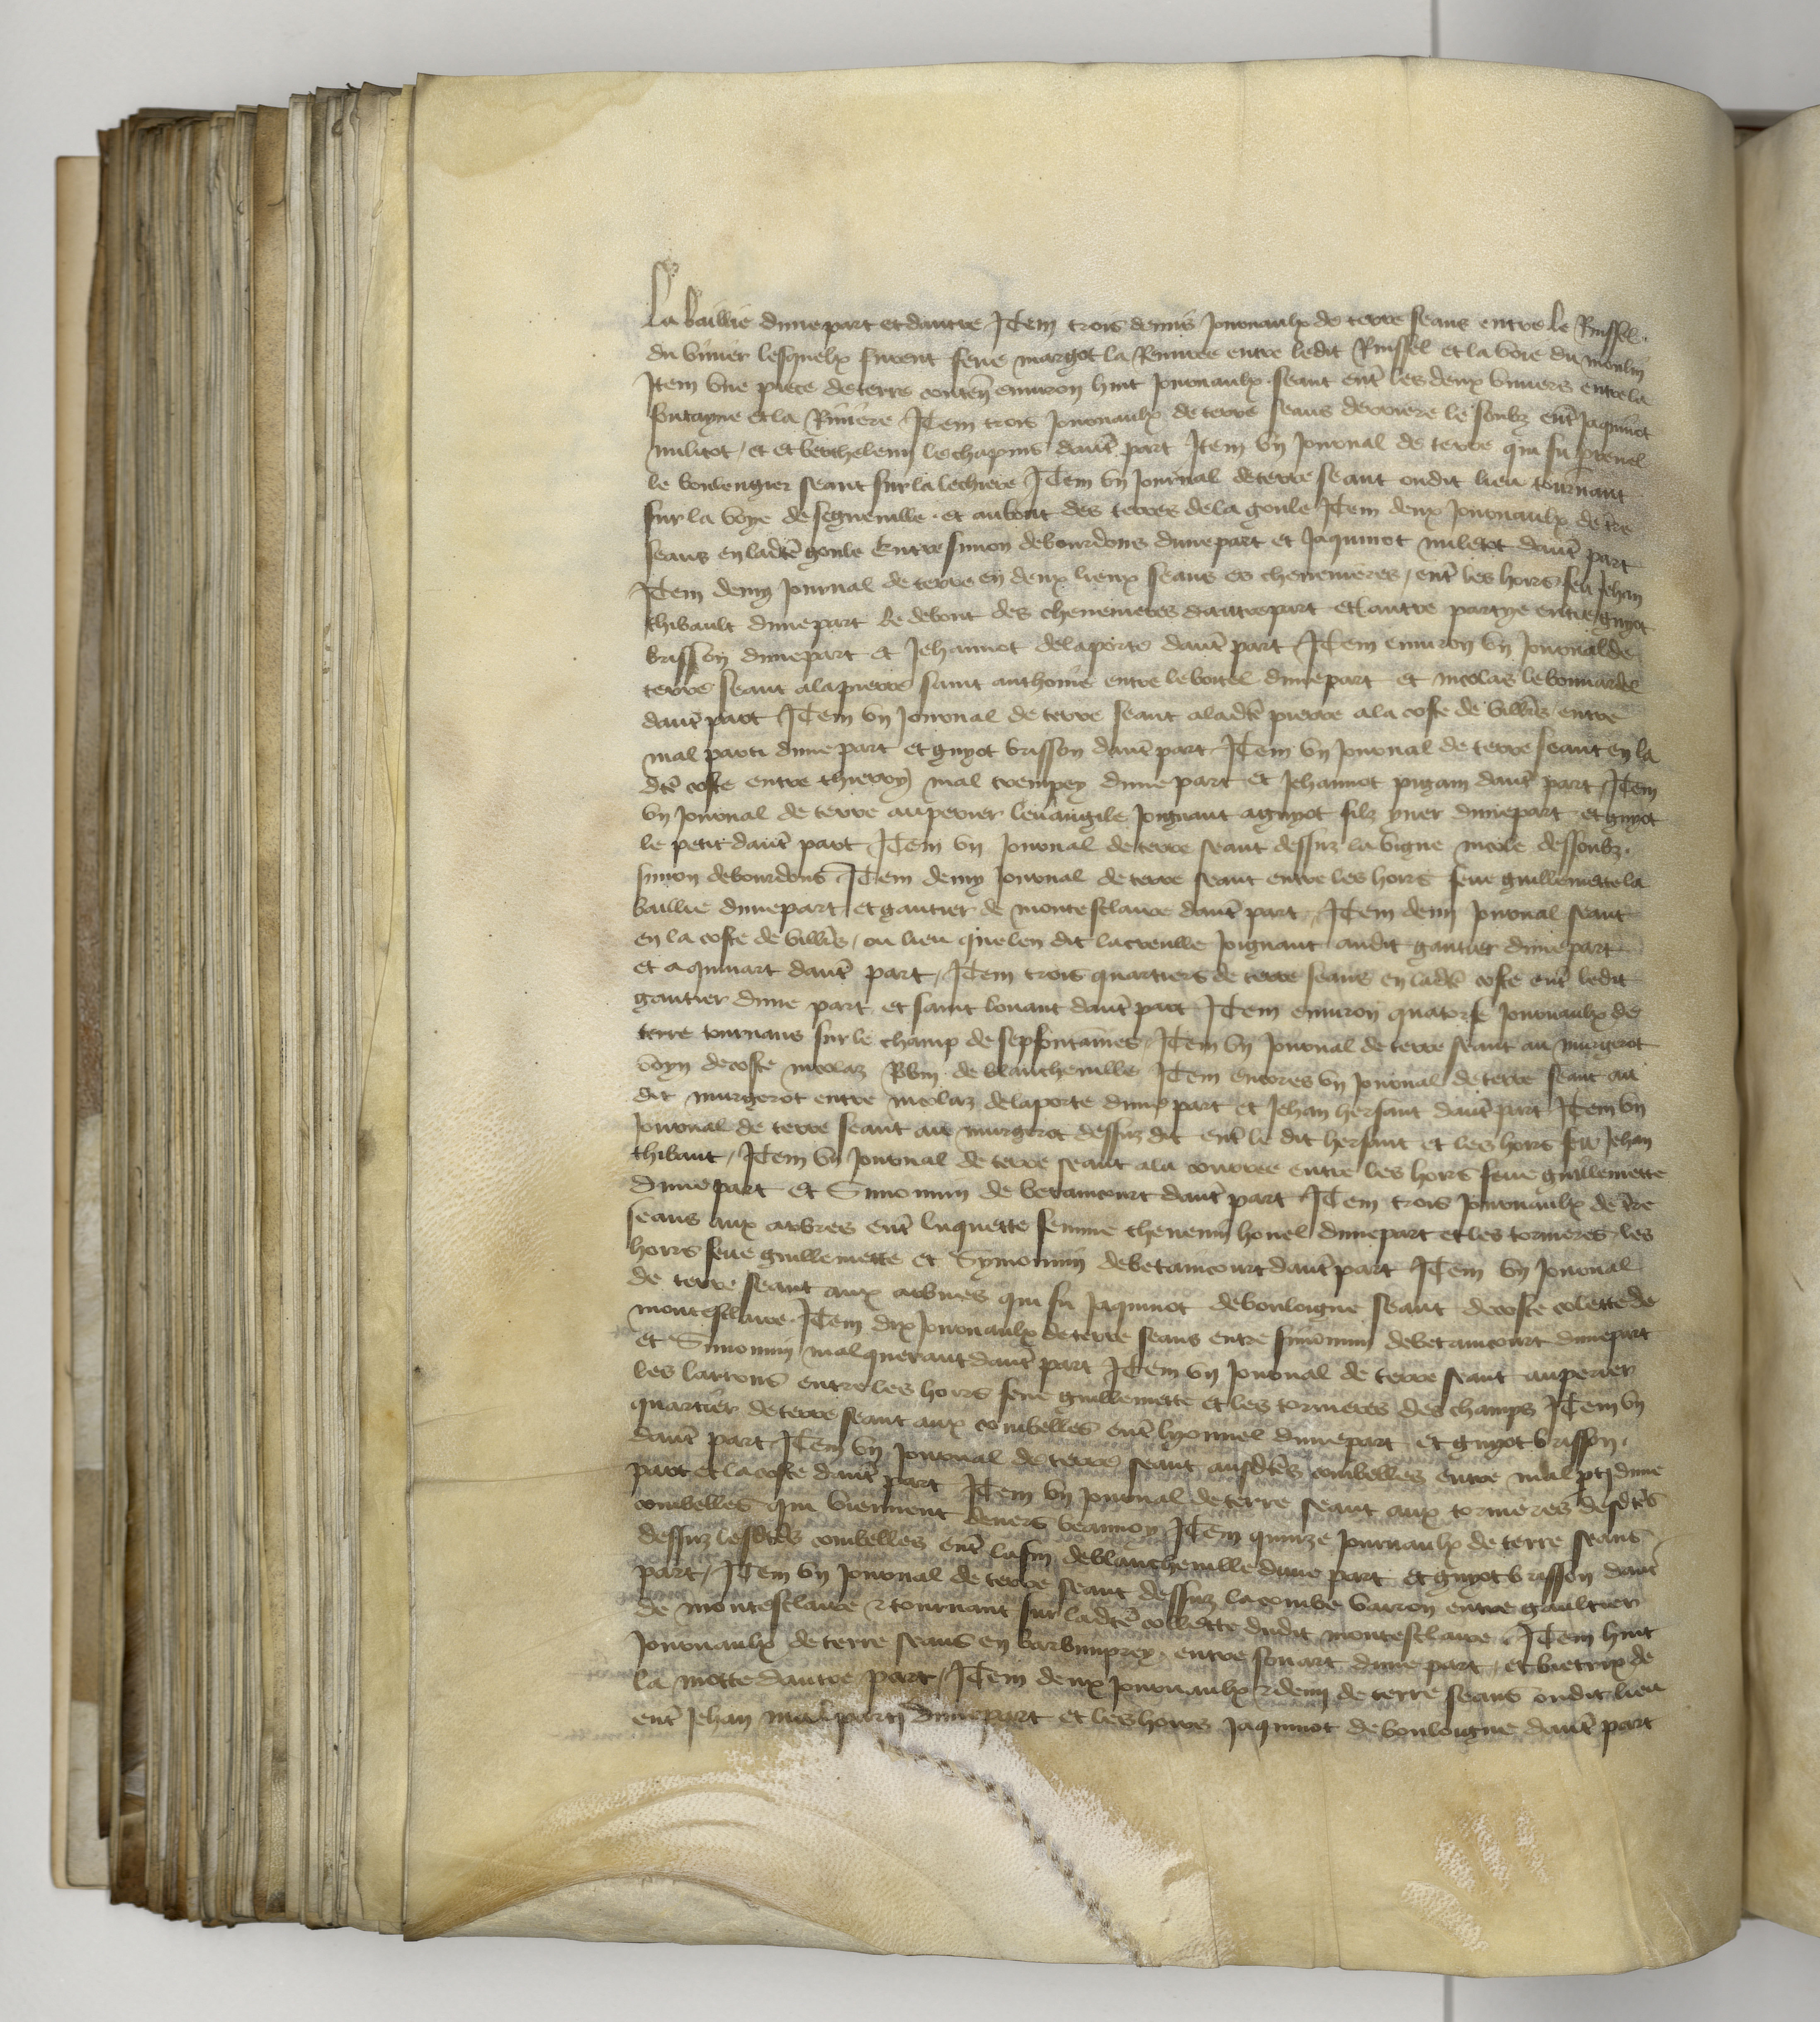 La baillie dune part et dautre Item trois demis Journaulx de terre seans entre le Ruissel
du vivier lesquelx furent feue margot la Remiree entre ledit Ruissel et la voie du moulin
Item une piece de terre conten environ huit Journaulx seant ent les deux viviers entre la
fontayne et la Riviere Item trois Journaulx de terre seans derriere le soubz ent Jaquinot
militot / et et berthelemin le chapuis daut part Item un Journal de terre qui fu prevel
le boulengier seant sur la lechiere Item un Journal de terre seant ondit lieu tournant
sur la voye de seguenille et au bout des terres de la goule Item deux Journaulx de tre
seans en ladte goule Entre simon de bourdons dune part et Jaquinot miletot daut part
Item demy Journal de terre en deux lieux seans es chenevieres / ent les hoirs feu Jehan
thibault dune part le debout des chenevieres dautre part et lautre partye entre guyot
brisson dune part et Jehannot de la porte daut part Item environ un Journal de
terre seant a la pierre saint anthoine entre le boitel dune part et nicolas le bouvardel
daut part Item un Journal de terre seant a ladte pierre a la coste de villers entre
mal parti dune part et guyot brisson daut part Item un Journal de terre seant en la
dte coste entre thierry mal trempey dune part et Jehannot pigam daut part Item
un Journal de terre au perier levangile Joignant a guyot filz yver dune part et guyot
le petit daut part Item un Journal de terre seant dessuz la vigne nicole dessoubz
simon de bourdons Item demy Journal de terre seant entre les hoirs feue guillemette la
baillie dune part et gautier de montesclaire daut part Item demi Journal seant
en la coste de villers / ou lieu que len dit la creulle Joignant audit gautier dune part
et aquinart daut part / Item trois quartiers de terre seans en ladte coste ent ledit
gautier dune part et saint lovant daut part Item environ quatorse Journaulx de
terre tournans sur le champ de sepfontaines / Item un Journal de terre seant au murgerot
voyn decoste nicolaz Robin de blancheville Item encores un Journal de terre seant au
dit murgerot entre nicolaz de la porte dune part et Jehan hersant daut part Item un
Journal de terre seant au murgerot dessuz dit ent le dit hersant et les hoirs feu Jehan
thibaut / Item un Journal de terre seant a la couree entre les hoirs feue guillemette
Dune part et Simonnin de betaincourt daut part Item trois Journaulx de tre
seans aux arbres ent luquette femme thevenin houel dune part et les tornieres les
hoirs feue guillemette et Symonnin de betaincourt daut part Item un Journal
de terre seant aux arbres qui fu Jaquinot de bouloigne seant decoste colette de
montesclaire Item dix Journaulx de terre seans entre simonnin de betaincourt dune part
et Simonnin malquerant daut part Item un Journal de terre seant au perier
les larrons entre les hoirs feue guillemette et les tornieres des champs Item un
quartier de terre seant aux combelles ent lyonnel dune part et guyot brisson
daut part Item un Journal de terre seant ausdtes combelles entre mal pti dune
part et la coste daut part Item un Journal de terre seant aux tornieres desdtes
combelles qui viennent devers veannon Item quinze Journaulx de terre seans
dessuz lesdtes combelles ent la fin de blancheville dune part et guyot brisson daut
part / Item un Journal de terre seant dessuz la combe varron entre gaultier
de montesclaire & tournant sur ladte collette dudit montesclaire Item huit
Journaulx de terre seans en barbinprey entre fouart dune part et bietrix de
la motte dautre part / Item deux Journaulx & demi de terre seans ondit lieu
ent Jehan mal parti Dune part et les hoirs Jaquinot de bouloigne daut part